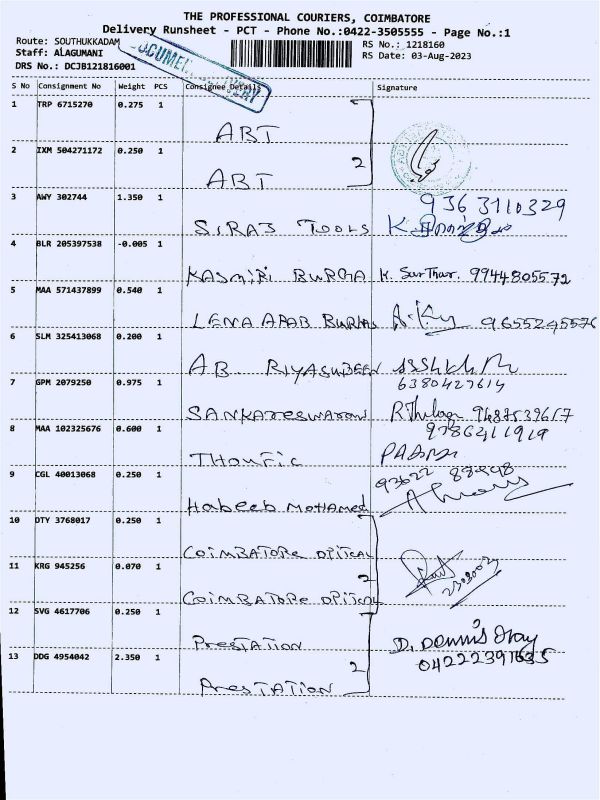 THE PROFESSIONAL COURIERS, COIMBATORE
Delivery Runsheet - PCT - Phone No.:0422-3505555 - Page No.:1
Route: SOUTHUKKADAM RS No.: 1218160
Staff: ALAGUMANI RS Date: 03-Aug-2023
DRS No.: DCJB121816001
S No Consignment No Weight PCS Consignee Details Signature
1 TRP 6715270 0.275 1 ABT
2 IXM 504271172 0.250 1 ABT 2
3 AWY 302744 1.350 1 SIRAJ TOOLS 9363110329
4 BLR 205397538 -0.005 1 KASMIRI BURGA 9944805572
5 MAA 571437899 0.540 1 LEMA ARAB BURKAS 9655245576
6 SLM 325413068 0.200 1 AB. RIYASUDEEN 6380427614
7 GPM 2079250 0.975 1 SANKARESWARAN
8 MAA 102325676 0.600 1 THOUFIC
9 CGL 40013068 0.250 1 Habeeb MOHAMED
10 DTY 3768017 0.250 1 COIMBATORE OPTICAL
11 KRG 945256 0.070 1 COIMBATORE OPTICAL 2
12 SVG 4617706 0.250 1 PresTATION
13 DDG 4954042 2.350 1 PresTATION 2